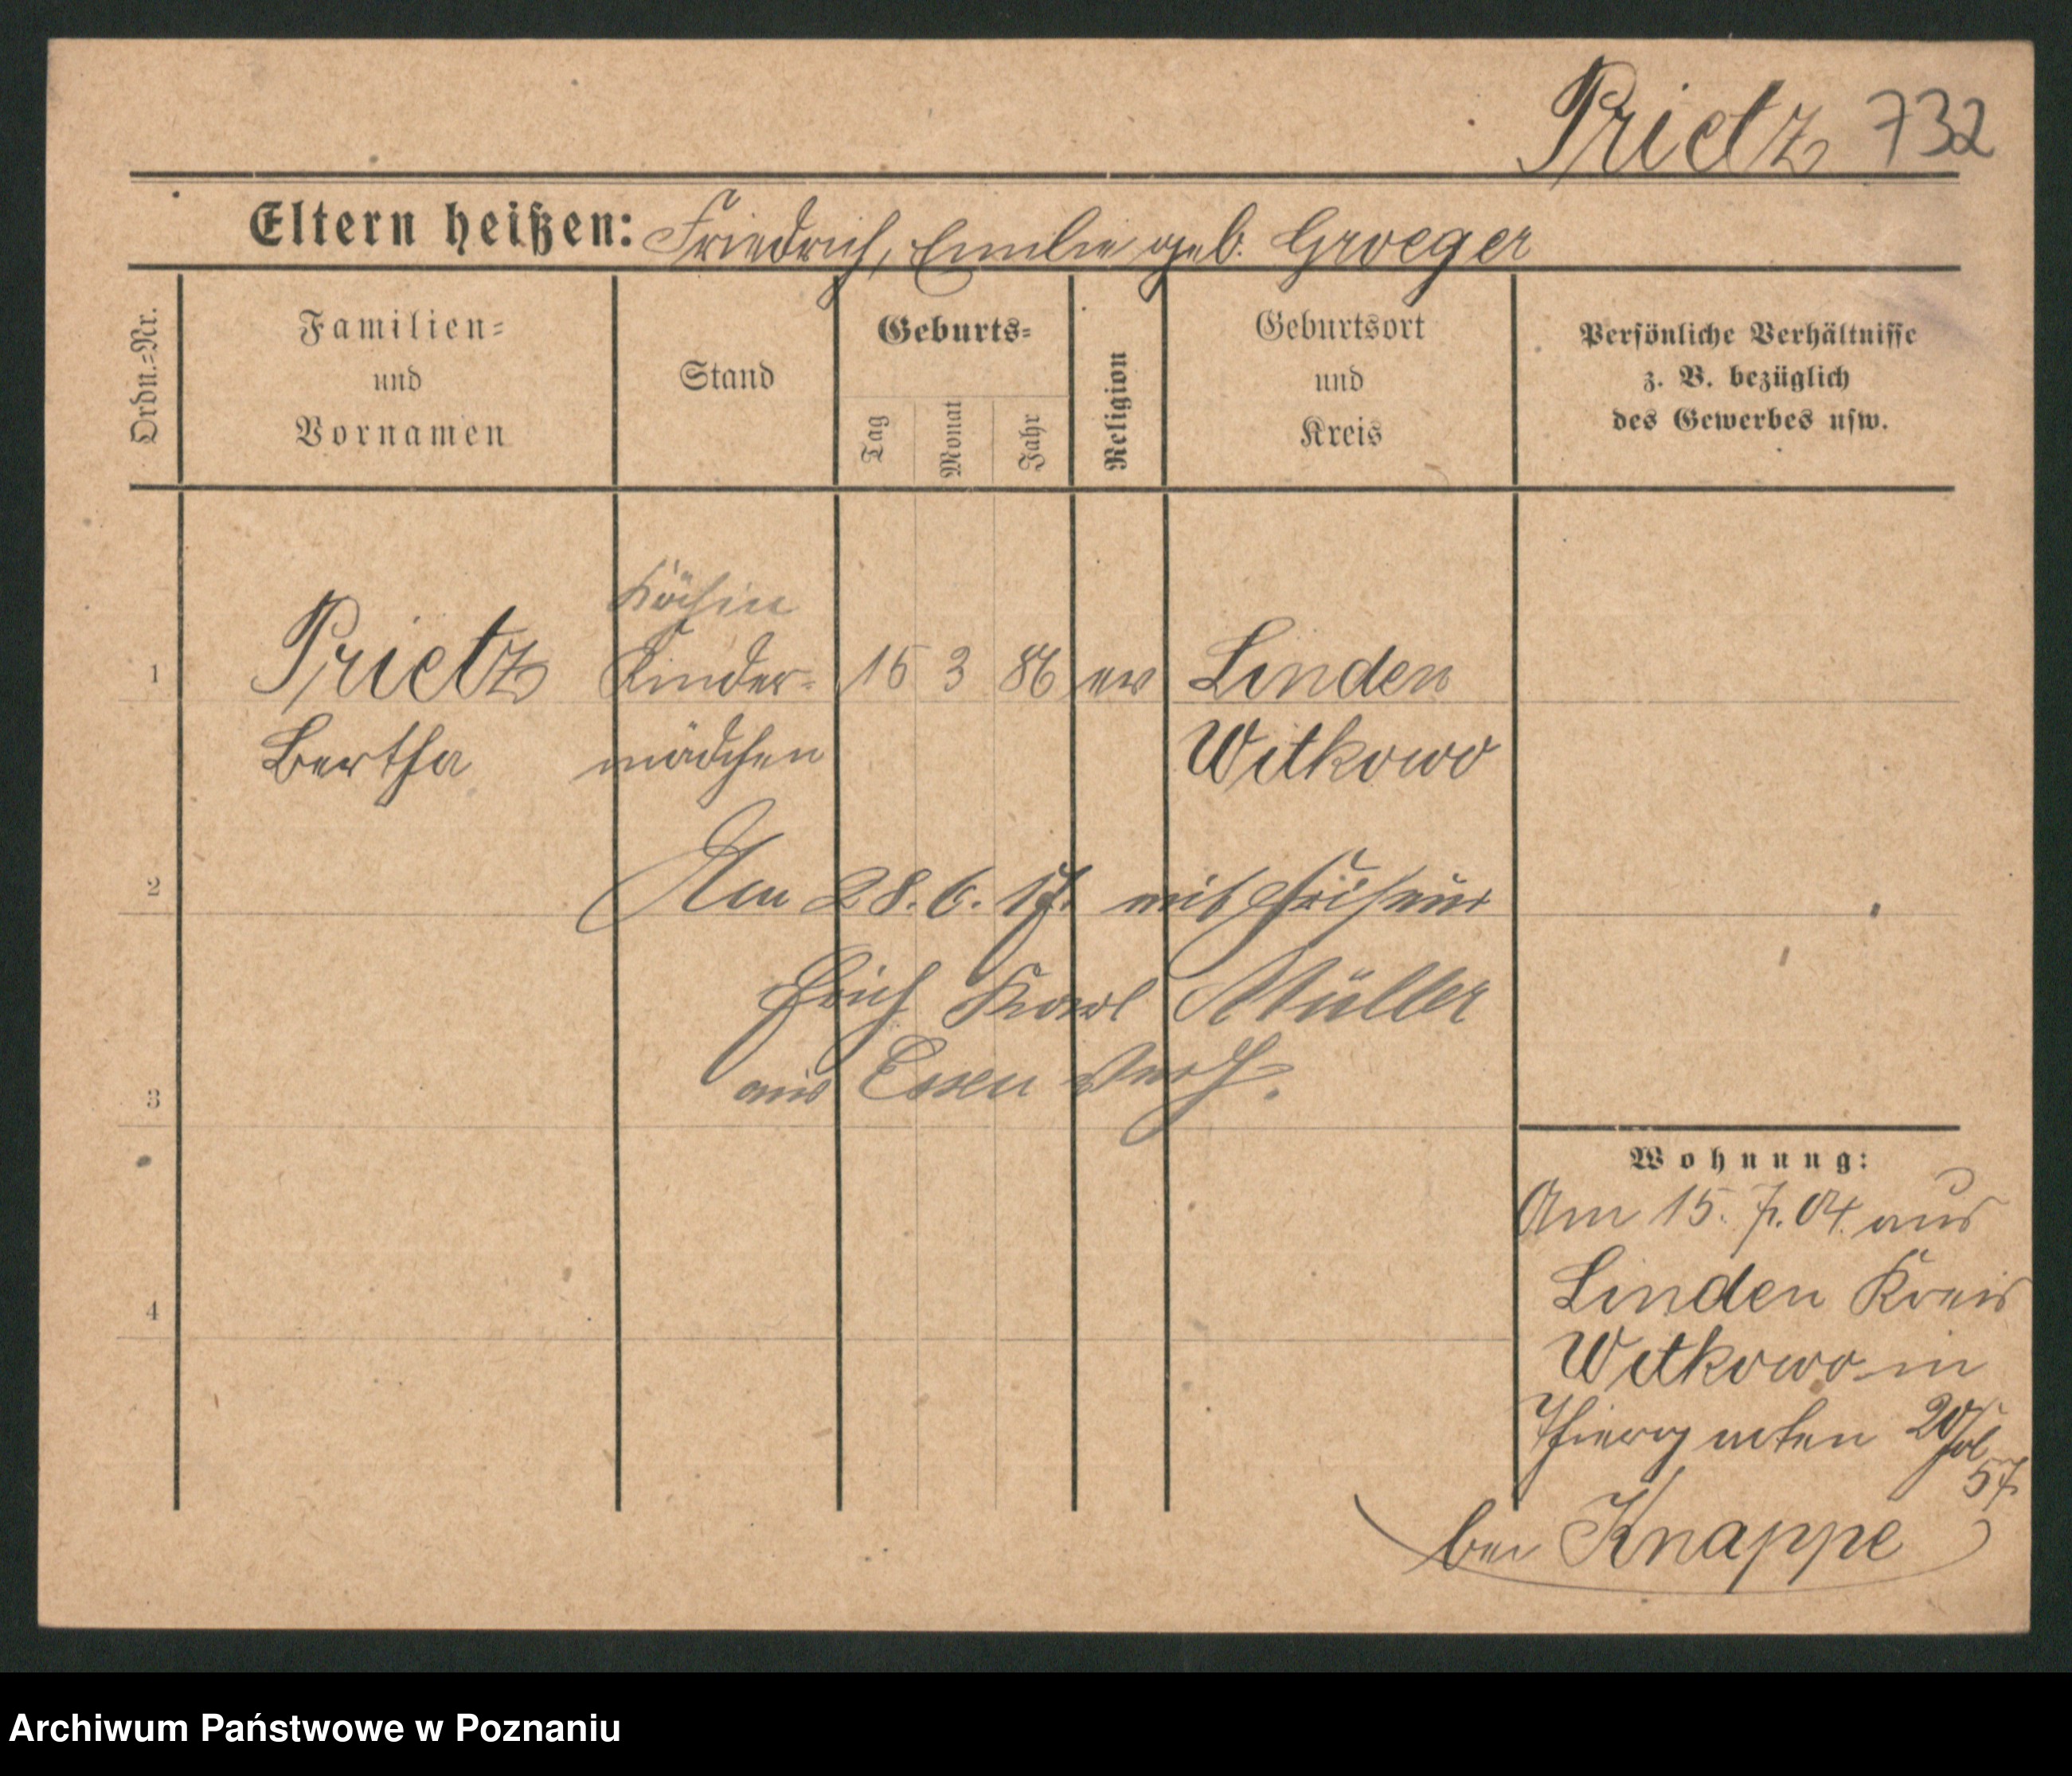 Prietz 732
Eltern heißen: Friedrich, Emilie geb. Groeger
Ordn.=Nr.
Familien=
und
Vornamen
Stand
Geburts=
Tag
Monat
Jahr
Religion
Geburtsort
und
Kreis
Persönliche Verhältnisse
z. B. bezüglich
des Gewerbes usw.
Köchin
1 Prietz Kinder= 15 3 86 ev Linden
Bertha mädchen Witkowo
2 Am 28. 6. 17. mit Friseur
Erich Karl Müller
3 aus Essen verh.
4
Wohnung:
Am 15. 7. 04. aus
Linden Kreis
Witkowo in
Thiergarten
57
bei Knappe
Archiwum Państwowe w Poznaniu